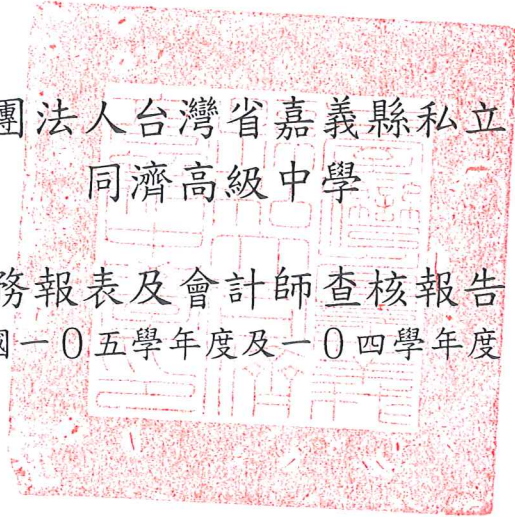 團法人台灣省嘉義縣私立
同濟高級中學
務報表及會計師查核報告
國一0五學年度及一0四學年度